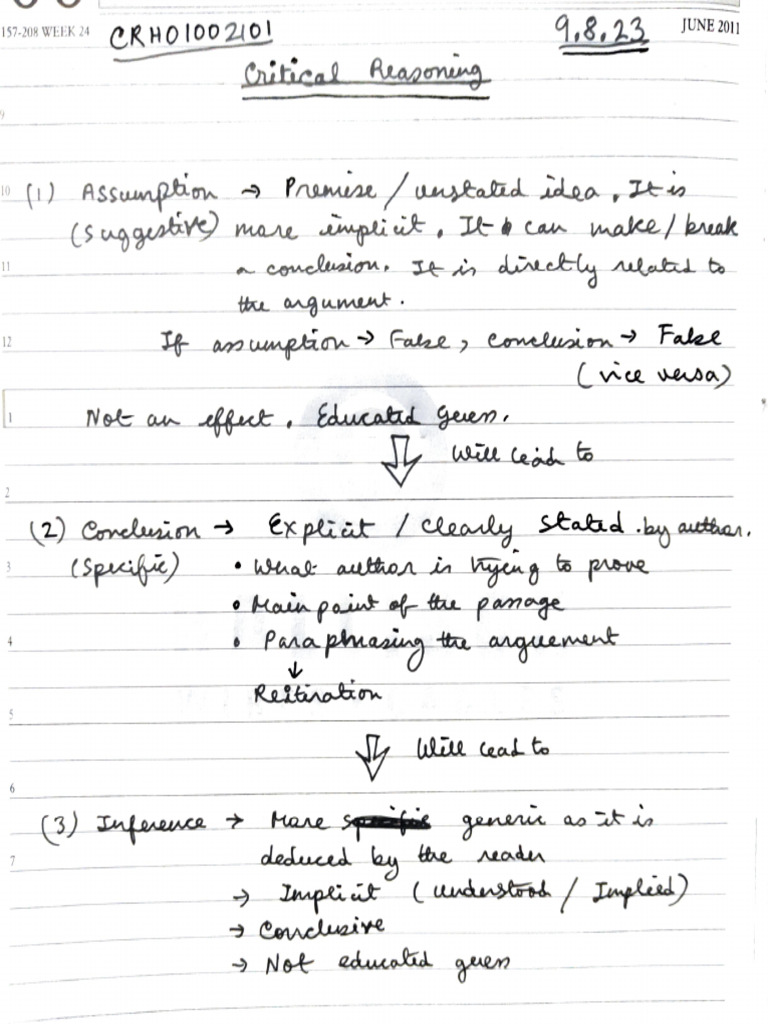 157-208 WEEK 24 CRH01002101 9.8.23 JUNE 2011
Critical Reasoning
9
10 (1) Assumption → Premise / unstated idea. It is
(Suggestive) more implicit. It can make / break
11 a conclusion. It is directly related to
the argument.
12 If assumption → False, conclusion → False
(vice versa)
1 Not an effect. Educated guess.
Will lead to
2
(2) Conclusion → Explicit / clearly stated by author.
3 (Specific) • What author is trying to prove
• Main point of the passage
4 • Paraphrasing the arguement
↓
Reitiration
5
Will lead to
6
(3) Inference → More generic as it is
7 deduced by the reader
→ Implicit (understood / Implied)
→ Conclusive
→ Not educated guess